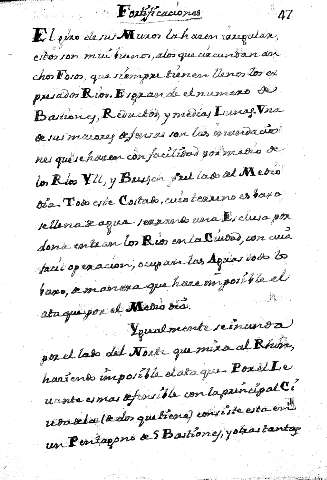 Fortificaciones
47
El giro de sus Muros la hacen irregular,
estos son mui buenos, a los que circundan an
chos Fosos, que siempre tienen llenos los ex
presados Rios. Es gran de el numero de
Bastiones, Reductos, y medias Lunas. Una
de sus maiores defensas son las inundacio
nes que se hacen con facilidad por medio de
los Rios Yll, y Brusch por el lado del Medio
dia. Todo este Costado, cuio terreno es baxo
se llena de agua serrando una Esclusa por
donde entran los Rios en la Ciudad, con cuia
facil operacion, ocupan las Aguas todo lo
baxo, de manera que hace imposible el
ataque por el Medio dia.
Ygualmente se inunda
por el lado del Norte que mira al Rhin,
haciendo imposible el ataque. Por el Le
vante es mas defensible con la principal Ci
udadela (de dos que tiene) consiste esta en
un Pentagono de 5 Bastiones, y otras tantas